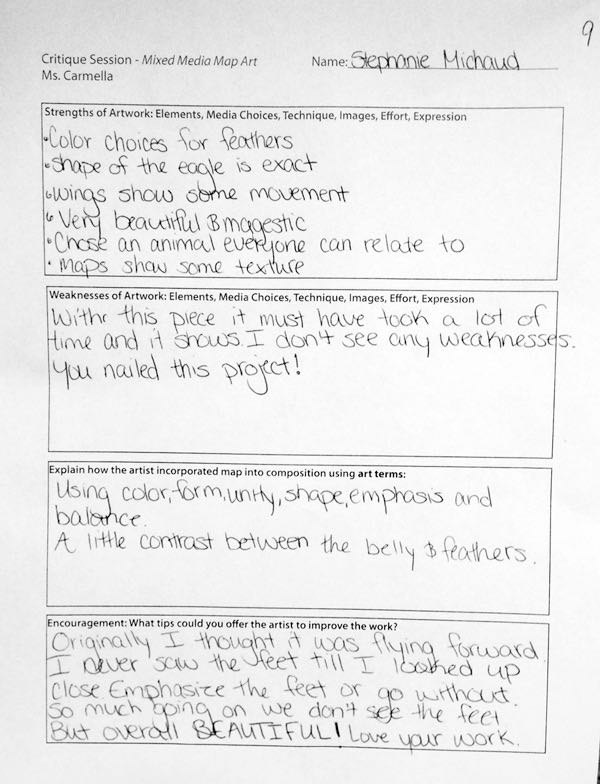 9
Critique Session - Mixed Media Map Art
Name: Stephanie Michaud
Ms. Carmella
Strengths of Artwork: Elements, Media Choices, Technique, Images, Effort, Expression
• Color choices for feathers
• Shape of the eagle is exact
• Wings show some movement
• Very beautiful & magestic
• Chose an animal everyone can relate to
• Maps show some texture
Weaknesses of Artwork: Elements, Media Choices, Technique, Images, Effort, Expression
Withr this piece it must have took a lot of
time and it shows. I don't see any weaknesses.
You nailed this project!
Explain how the artist incorporated map into composition using art terms:
Using color, form, unity, shape, emphasis and
balance.
A little contrast between the belly & feathers.
Encouragement: What tips could you offer the artist to improve the work?
Originally I thought it was flying forward
I never saw the feet till I looked up
close. Emphasize the feet or go without.
So much going on we don't see the feet
But overall BEAUTIFUL! Love your work.